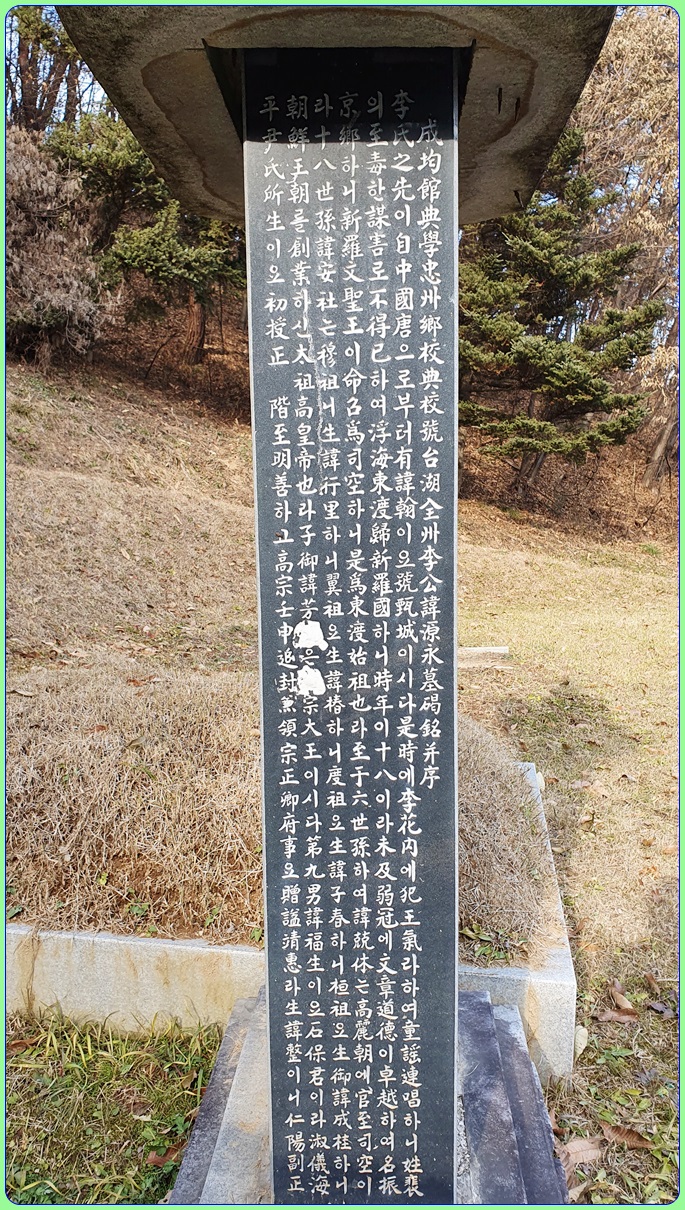 成均館典學忠州鄕校典校號台湖全州李公諱源永墓碣銘并序
李氏之先이自中國唐으로부터有諱翰이요號甄城이시다是時에李花內에犯王氣라하여童謠連唱하니姓裴
의至毒한謀害로不得已하여浮海東渡歸新羅國하니時年이十八이라未及弱冠에文章道德이卓越하여名振
京鄕하니新羅文聖王이命召爲司空하니是爲東渡始祖也라至于六世孫하여諱兢体는高麗朝에官至司空이
라十八世孫諱安社는穆祖니生諱行里하니翼祖요生諱椿하니度祖요生諱子春하니桓祖요生御諱成桂하니
朝鮮王朝를創業하신太祖高皇帝也라子御諱芳 은 宗大王이시다第九男諱福生이요石保君이라淑儀海
平尹氏所生이요初授正 階至明善하고高宗壬申追封兼領宗正卿府事요贈諡靖惠라生諱整이니仁陽副正